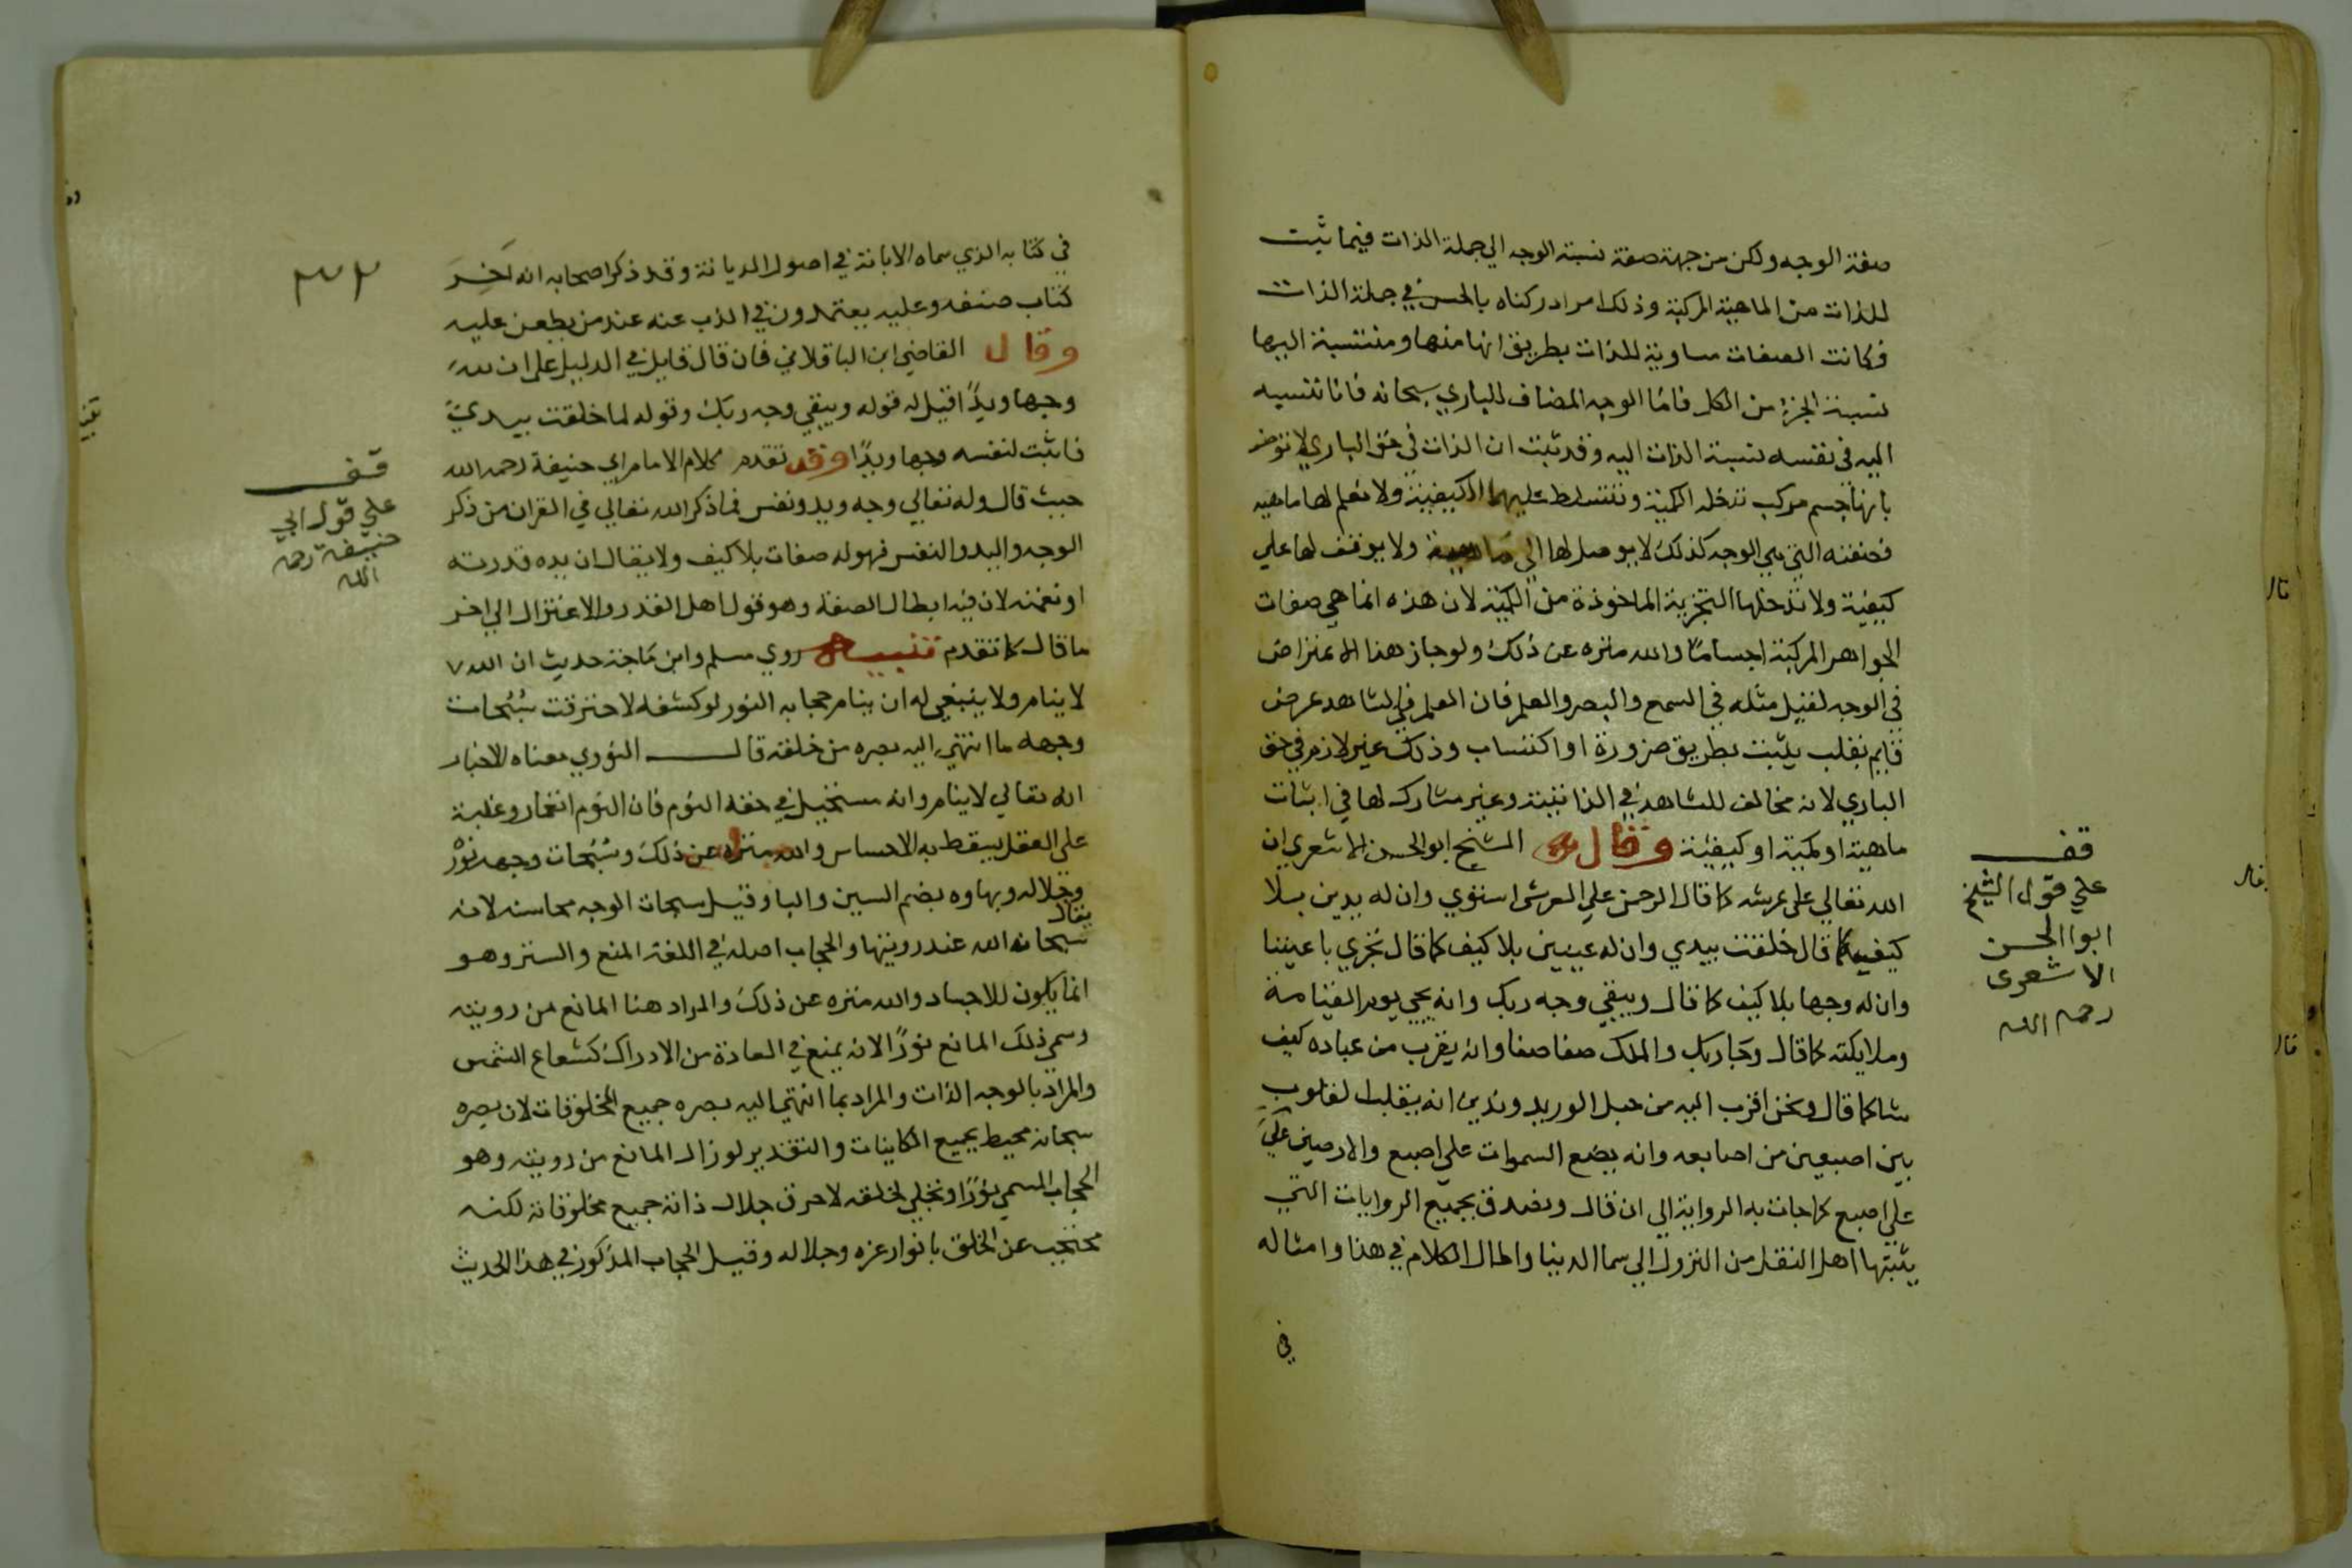 صفة الوجه ولكن من جهة صفة نسبة الوجه الي جملة الذات فيما ثبت
للذات من الماهية المركبة وذلك امر ادركناه بالحس في جملة الذات
فكانت الصفات مساوية للذات بطريق انها منها ومنتسبة اليها
نسبة الجزء من الكل فامّا الوجه المضاف للباري سبحانه فانا ننسبه
اليه في نفسه نسبة الذات اليه وقد ثبت ان الذات في حق الباري لا توصف
بانها جسم مركب تدخله الكمية وتتسلط عليها الكيفية ولا نعلم لها ماهيه
فصفته التي هي الوجه كذلك لا يوصل لها الي ماهية ولا يوقف لها علي
كيفية ولا تدخلها التجزية الماخوذة من الكمية لان هذه انما هي صفات
الجواهر المركبة اجسامًا والله منزه عن ذلك ولو جاز هذا الاعتراض
في الوجه لقيل مثله في السمع والبصر والعلم فان العلم في الشاهد عرض
قايم بقلب يثبت بطريق ضرورة او اكتساب وذلك غير لازم في حق
الباري لانه مخالف للشاهد في الذاتية وغير مشارك لها في اثبات
ماهية او كمية او كيفية وقال الشيخ ابو الحسن الاشعري ان
الله تعالي علي عرشه كما قال الرحمن علي العرش استوي وان له يدين بلا
كيفية كما قال خلقت بيدي وان له عينين بلا كيف كما قال تجري باعيننا
وان له وجها بلا كيف كما قال ويبقي وجه ربك وانه يجي يوم القيامة
وملايكته كما قال وجا ربك والملك صفا صفا وانه يقرب من عباده كيف
شا كما قال ونحن اقرب اليه من حبل الوريد وندين انه يقلب القلوب
بين اصبعين من اصابعه وانه يضع السموات علي اصبع والارضين علي
علي اصبع كما جات به الرواية الي ان قال ونصدق بجميع الروايات التي
يثبتها اهل النقل من النزول الي سما الدنيا واطال الكلام في هذا وامثاله
في
قف
علي قول الشيخ
ابوا الحسن
الاشعرى
رحمه الله
في كتابه الذي سماه الابانة في اصول الديانة وقد ذكر اصحابه انه اخِرَ
كتاب صنفه وعليه يعتمدون في الذب عنه عند من يطعن عليه
وقال القاضي ابن الباقلاني فان قال قايل في الدليل علي ان لله
وجها ويدًا قيل له قوله ويبقي وجه ربك وقوله لما خلقت بيديَّ
فاثبت لنفسه وجها ويدًا وقد تقدم كلام الامام ابي حنيفة رحمه الله
حيث قال وله تعالي وجه ويد ونفس فما ذكر الله تعالي في القران من ذكر
الوجه واليد والنفس فهو له صفات بلا كيف ولا يقال ان يده قدرته
او نعمته لان فيه ابطال الصفة وهو قول اهل القدر والاعتزال الي اخر
ما قال كما تقدم تنبيه روي مسلم وابن ماجة حديث ان الله
لا ينام ولا ينبغي له ان ينام حجابه النور لو كشفه لاحترقت سُبُحات
وجهه ما انتهي اليه بصره من خلقه قال النووي معناه الاخبار
انه تعالي لا ينام وانه مستحيل في حقه النوم فان النوم انغمار وغلبة
علي العقل يسقط به الاحساس والله منزه عن ذلك وسُبُحات وجهه نورُ
وجلاله وبهاوه بضم السين والبا وقيل سبحات الوجه محاسنه لانه
يقال
سبحان الله عند رويتها والحجاب اصله في اللغة المنع والستر وهو
انما يكون للاجساد والله منزه عن ذلك والمراد هنا المانع من رويته
وسمي ذلك المانع نورًا لانه يمنع في العادة من الادراك كشعاع الشمس
والمراد بالوجه الذات والمراد بما انتهي اليه بصره جميع المخلوقات لان بصره
سبحانه محيط بجميع الكاينات والتقدير لو زال المانع من رويته وهو
الحجاب المسمي نورًا وتجلي لخلقه لاحرق جلال ذاته جميع مخلوقاته لكنه
محتجب عن الخلق بانوار عزه وجلاله وقيل الحجاب المذكور في هذا الحديث
قف
علي قول ابي
حنيفة رحمه
الله